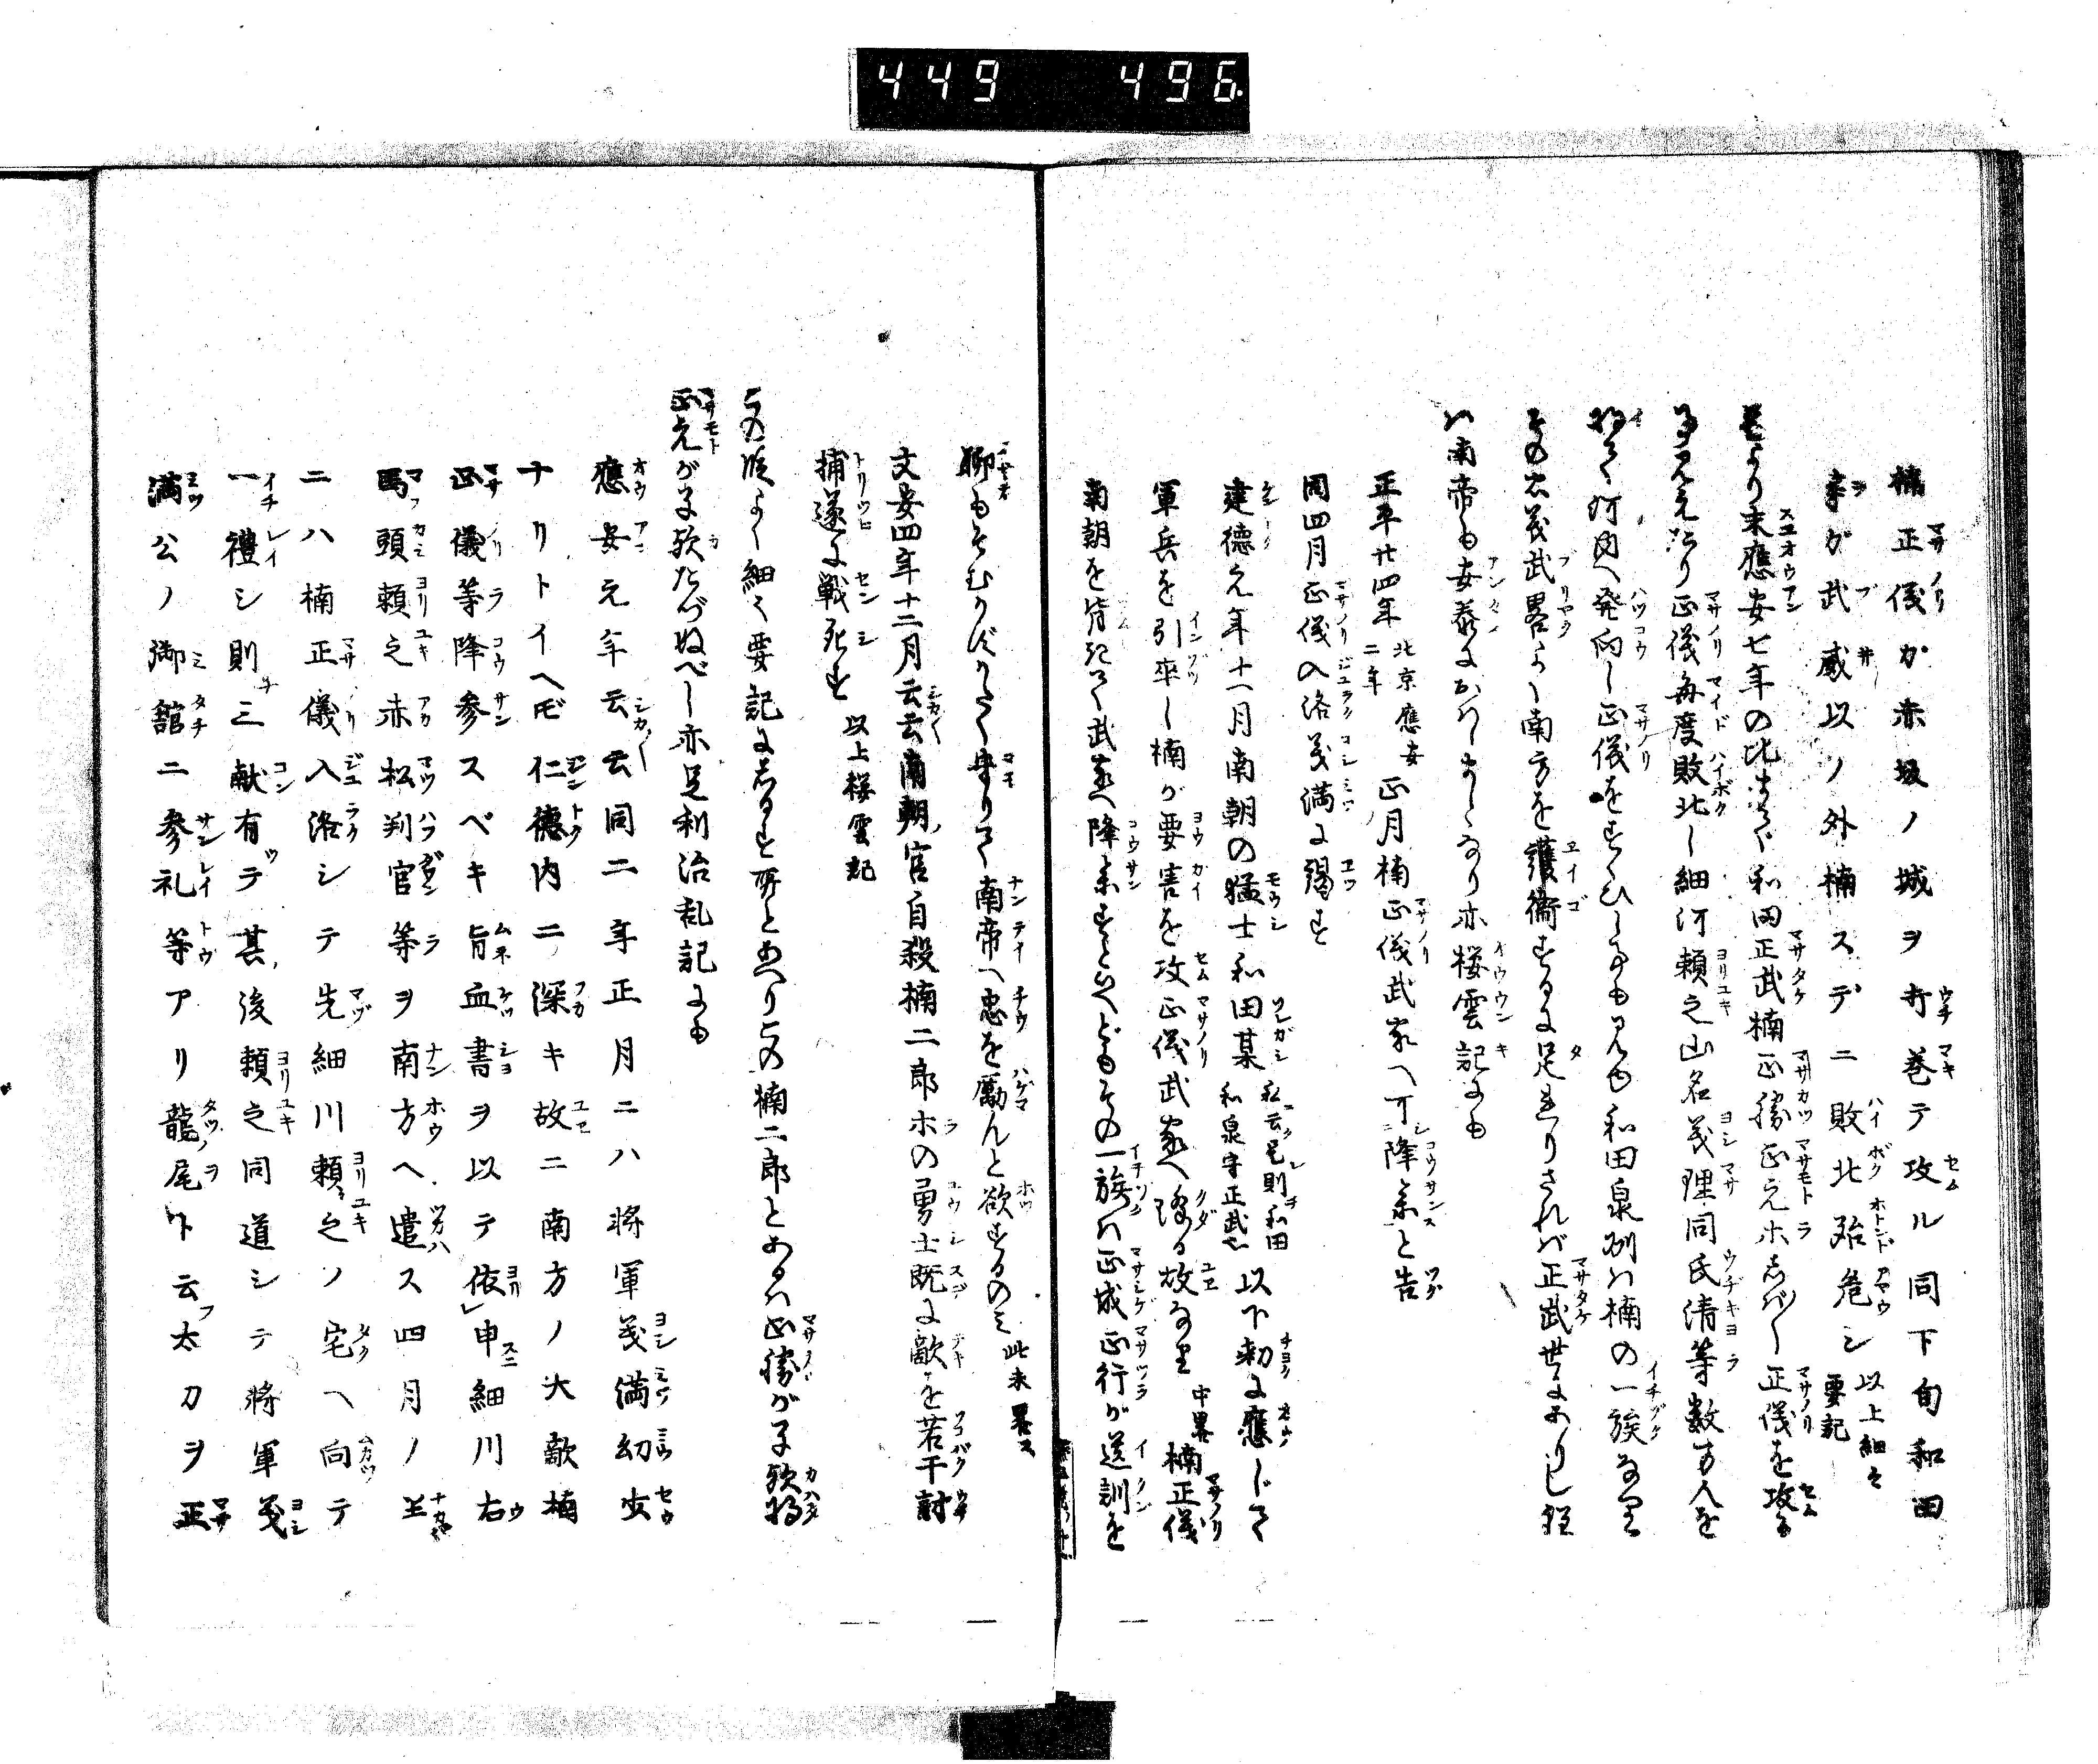 449 496
楠正儀カ赤坂ノ城ヲ打巻テ攻ル同下旬和田
楠ガ武威以ノ外楠スデニ敗北殆危シ以上細々要記
是より末應安七年の比まで和田正武楠正勝正元ホしば〳〵正儀を攻る
事見えたり正儀毎度敗北し細河頼之山名義理同氏清等数万人を
将て河内へ発向し正儀をすくひし事も見ゆ和田泉州は楠の一族なるに
その忠義武畧よく南方を護衛するに足れりされば正武世にありし程
は南帝も安泰におはしましゝなり亦桜雲記にも
正平廿四年北京應安二年正月楠正儀武家へ可降参と告
同四月正儀入洛義満に謁す
建徳元年十一月南朝の猛士和田某私云是則和田和泉守正武也以下勅に應じて
軍兵を引率し楠が要害を攻正儀武家へ降る故なり中畧楠正儀
南朝を背きて武家へ降参すといへどもその一族は正成正行が遺訓を
聊もそむかずかたく守りて南帝へ忠を勵んと欲するのミ此末畧ス
文安四年十二月云云南朝ノ宮自殺楠二郎ホの勇士既に敵を若干討
捕遂に戦死す以上桜雲記
この段よく細々要記にしるす所とあへりこの楠二郎とあるは正勝が子歟将
正元が子歟たづぬべし亦足利治乱記にも
應安元年云云同二年正月ニハ将軍義満幼少
ナリトイヘドモ仁徳内ニ深キ故ニ南方ノ大敵楠
正儀等降参スベキ旨血書ヲ以テ依レ申細川右
馬頭頼之赤松判官等ヲ南方ヘ遣ス四月ノ半
ニハ楠正儀入洛シテ先細川頼之ノ宅ヘ向テ
一禮シ則チ三献有ッテ其後頼之同道シテ将軍義
満公ノ御舘ニ参礼等アリ龍尾ト云フ太刀ヲ正